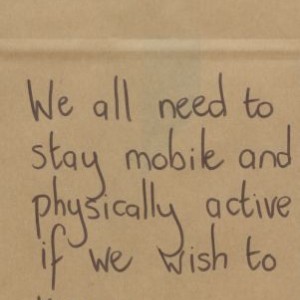 We all need to
stay mobile and
physically active
if we wish to